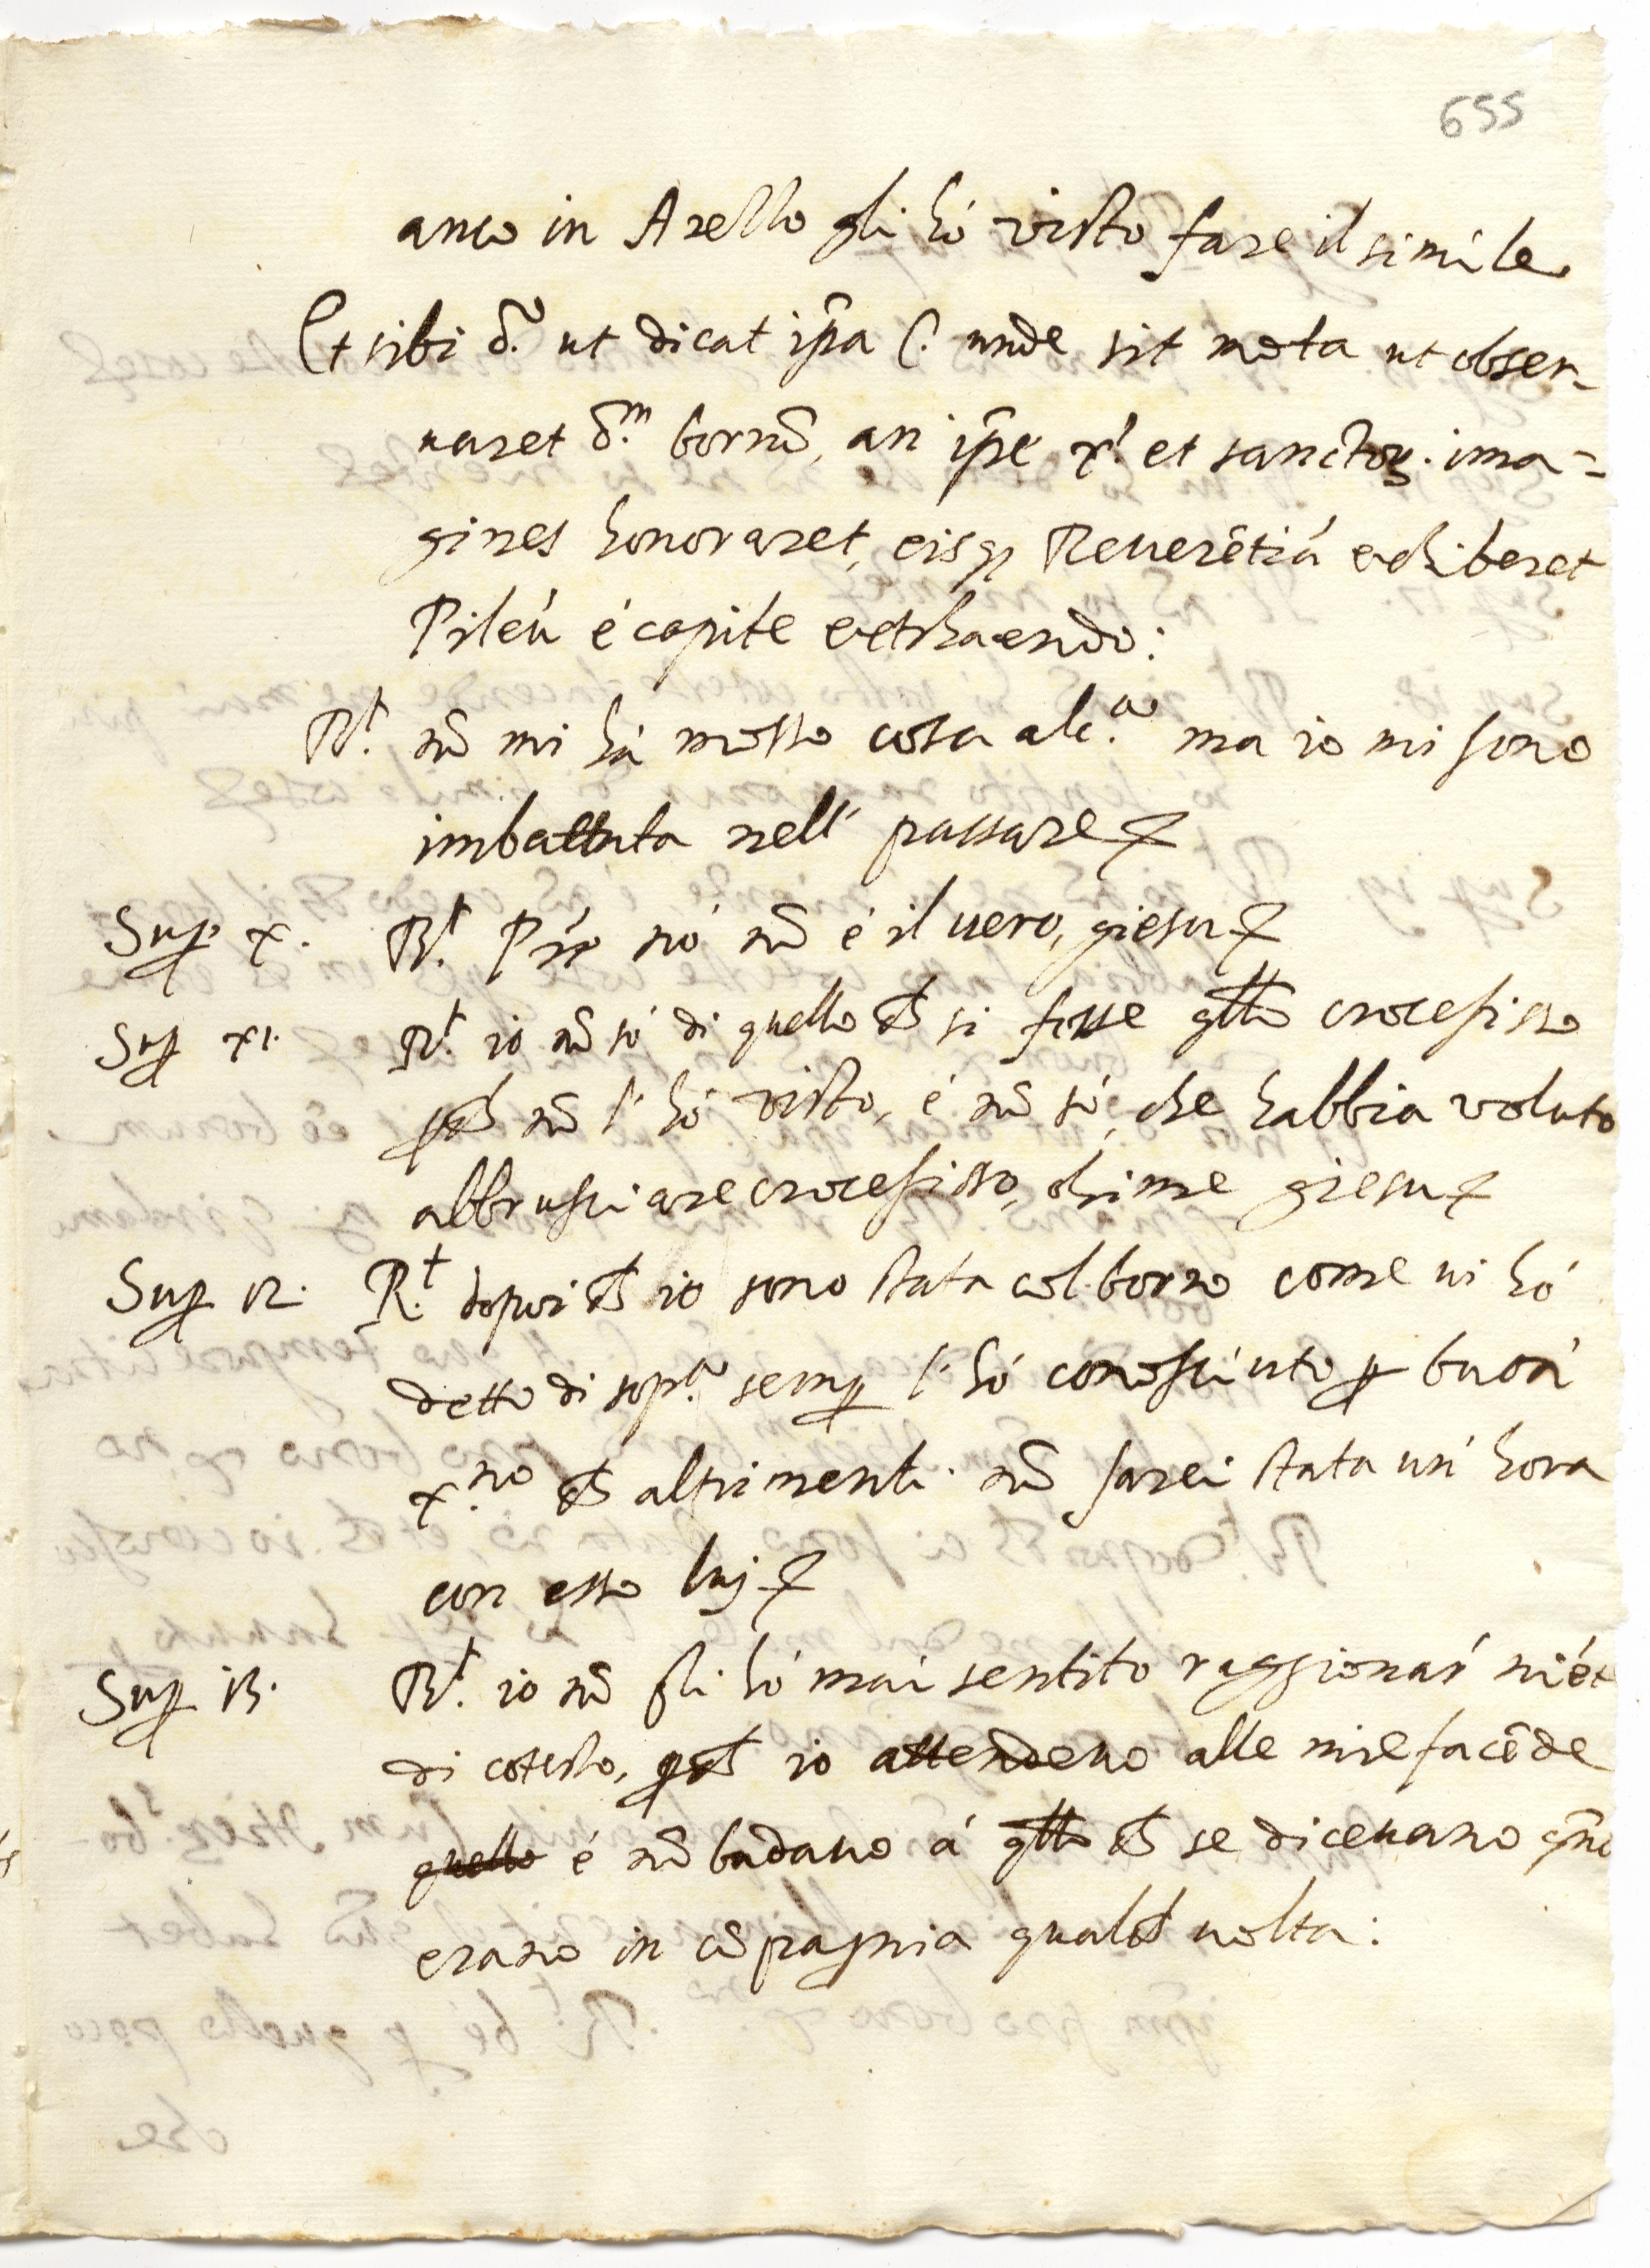 655
anco in Arello gli hó visto fare il simile
Et sibi d.º ut dicat ip̃a C. unde sit mota ut obser-
uaret d.ᵐ bornũ, an ip̃e xⁱ. et sanctoꝝ. ima=
gines honoraret, eisq; Reuerẽtiá exhiberet
Pileú é capite extrhaendo:
Rᵗ. nõ mi há mosso cosa alc.ª ma io mi sono
imbattuta nell' passare
Sup x. Rᵗ. P nó nõ é il uero, giesu
Sup xi. Rᵗ. io nõ só di quello ch̃ si fosse q̃llo crocefisso
ꝑch̃ nõ l' hó visto, é nõ só, che habbia voluto
abbrusciare crocefisso, ohime giesu
Sup 12. Rᵗ. dopoi ch̃ io sono stata col borno come ui hó
detto di sop.ª semꝑ l' hó conosciuto ꝑ buon
x.ⁿᵒ ch̃ altrimenti nõ sarei stata un' hora
con esso luj
Sup 13. Rᵗ. io nõ gli hó mai sentito raggionar' niẽt
di cotesto, ꝑch̃ io attendeuo alle mie facẽde
quello é nõ badauo á q̃llo ch̃ se diceuano qñ
erano in cõpagnia qualch̃ uolta: